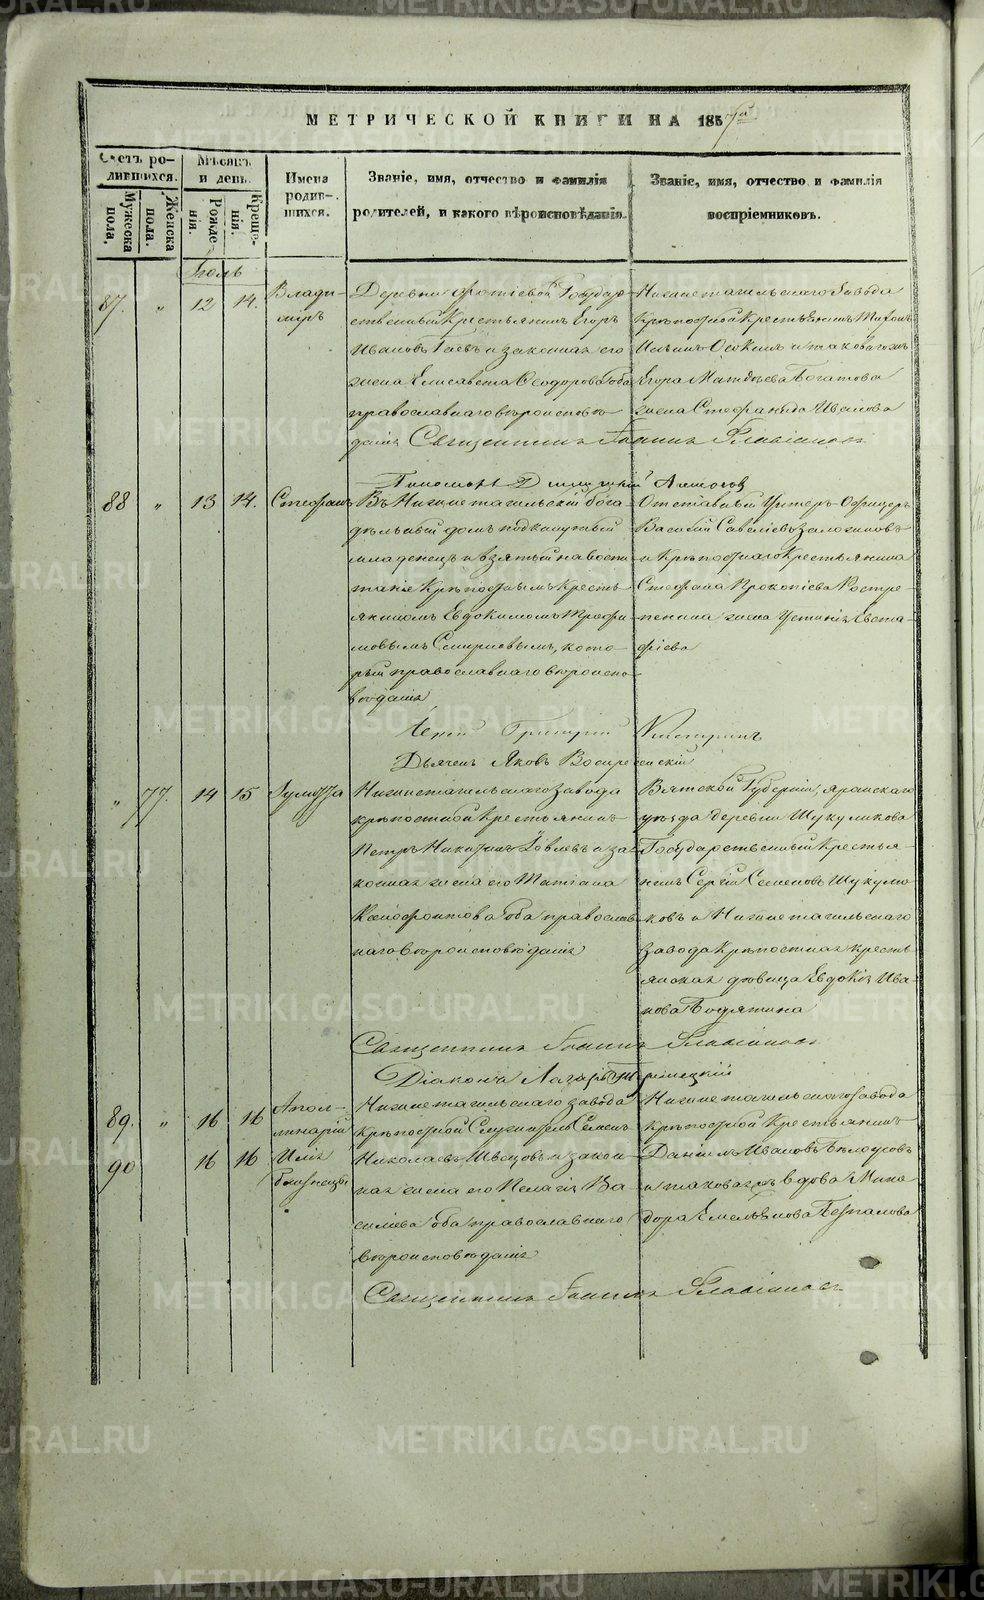 МЕТРИЧЕСКОЙ КНИГИ НА 1857 й
Счетъ родившихся.
Мужеска пола.
Женска пола.
Мѣсяцъ и день.
Рожденія.
Крещенія.
Имена родившихся.
Званіе, имя, отчество и фамилія родителей, и какого вѣроисповѣданія.
Званіе, имя, отчество и фамилія воспріемниковъ.
Іюль
87. " 12 14. Владиміръ
Деревни Фотіевой Государ-
ственный крестьянинъ Егоръ
Ивановъ Гаевъ и законная его
жена Елисавета Ѳеодорова оба
православнаго вѣроисповѣ-
данія
Нижнетагильскаго завода
крѣпостной крестьянинъ
Ильинъ Осокинъ и таковагожъ
Егора Матвѣева Богатова
жена Стефанида Иванова
Священникъ Іоаннъ Флавіановъ
Пономарь Димитрій
88 " 13 14. Стефанъ
Въ Нижнетагильскій бога-
дѣльный домъ подкинутый
младенецъ и взятый на воспи-
таніе крѣпостнымъ кресть-
яниномъ Евдокимомъ Трофи-
мовымъ Смирновымъ, кото-
рый православнаго вѣроиспо-
вѣданія
Отставный Унтеръ-Офицеръ
Василій Савельевъ
и крѣпостнаго крестьянина
Стефана Прокопіева Востре-
тенина жена Устинія Евста-
фіева
Григорій
Дьячекъ Яковъ Воскресенскій
" 77. 14 15 Іулитта
Нижнетагильскаго завода
крѣпостной крестьянинъ
Петръ Никитинъ Іовлевъ и за-
конная жена его Татіана
Ксенофонтова оба православ-
наго вѣроисповѣданія
Вятской Губерніи, Яранскаго
уѣзда деревни Шукумикова
Государственный крестья-
нинъ Сергій Семеновъ
и Нижнетагильскаго
завода крѣпостная кресть-
янская дѣвица Евдокія Ива-
нова
Священникъ Іоаннъ Флавіановъ
Діаконъ Лазарь
89. " 16 16 Аполлинарій
90 16 16 Илія
близнецы
Нижнетагильскаго завода
крѣпостной служитель Семенъ
Николаевъ Швецовъ и закон-
ная жена его Пелагія Ва-
силіева оба православнаго
вѣроисповѣданія
Нижнетагильскаго завода
крѣпостной крестьянинъ
Даніилъ Ивановъ Бѣлоусовъ
и таковая жъ вдова Мино-
дора Емельянова Безпалова
Священникъ Іоаннъ Флавіановъ
METRIKI.GASO-URAL.RU